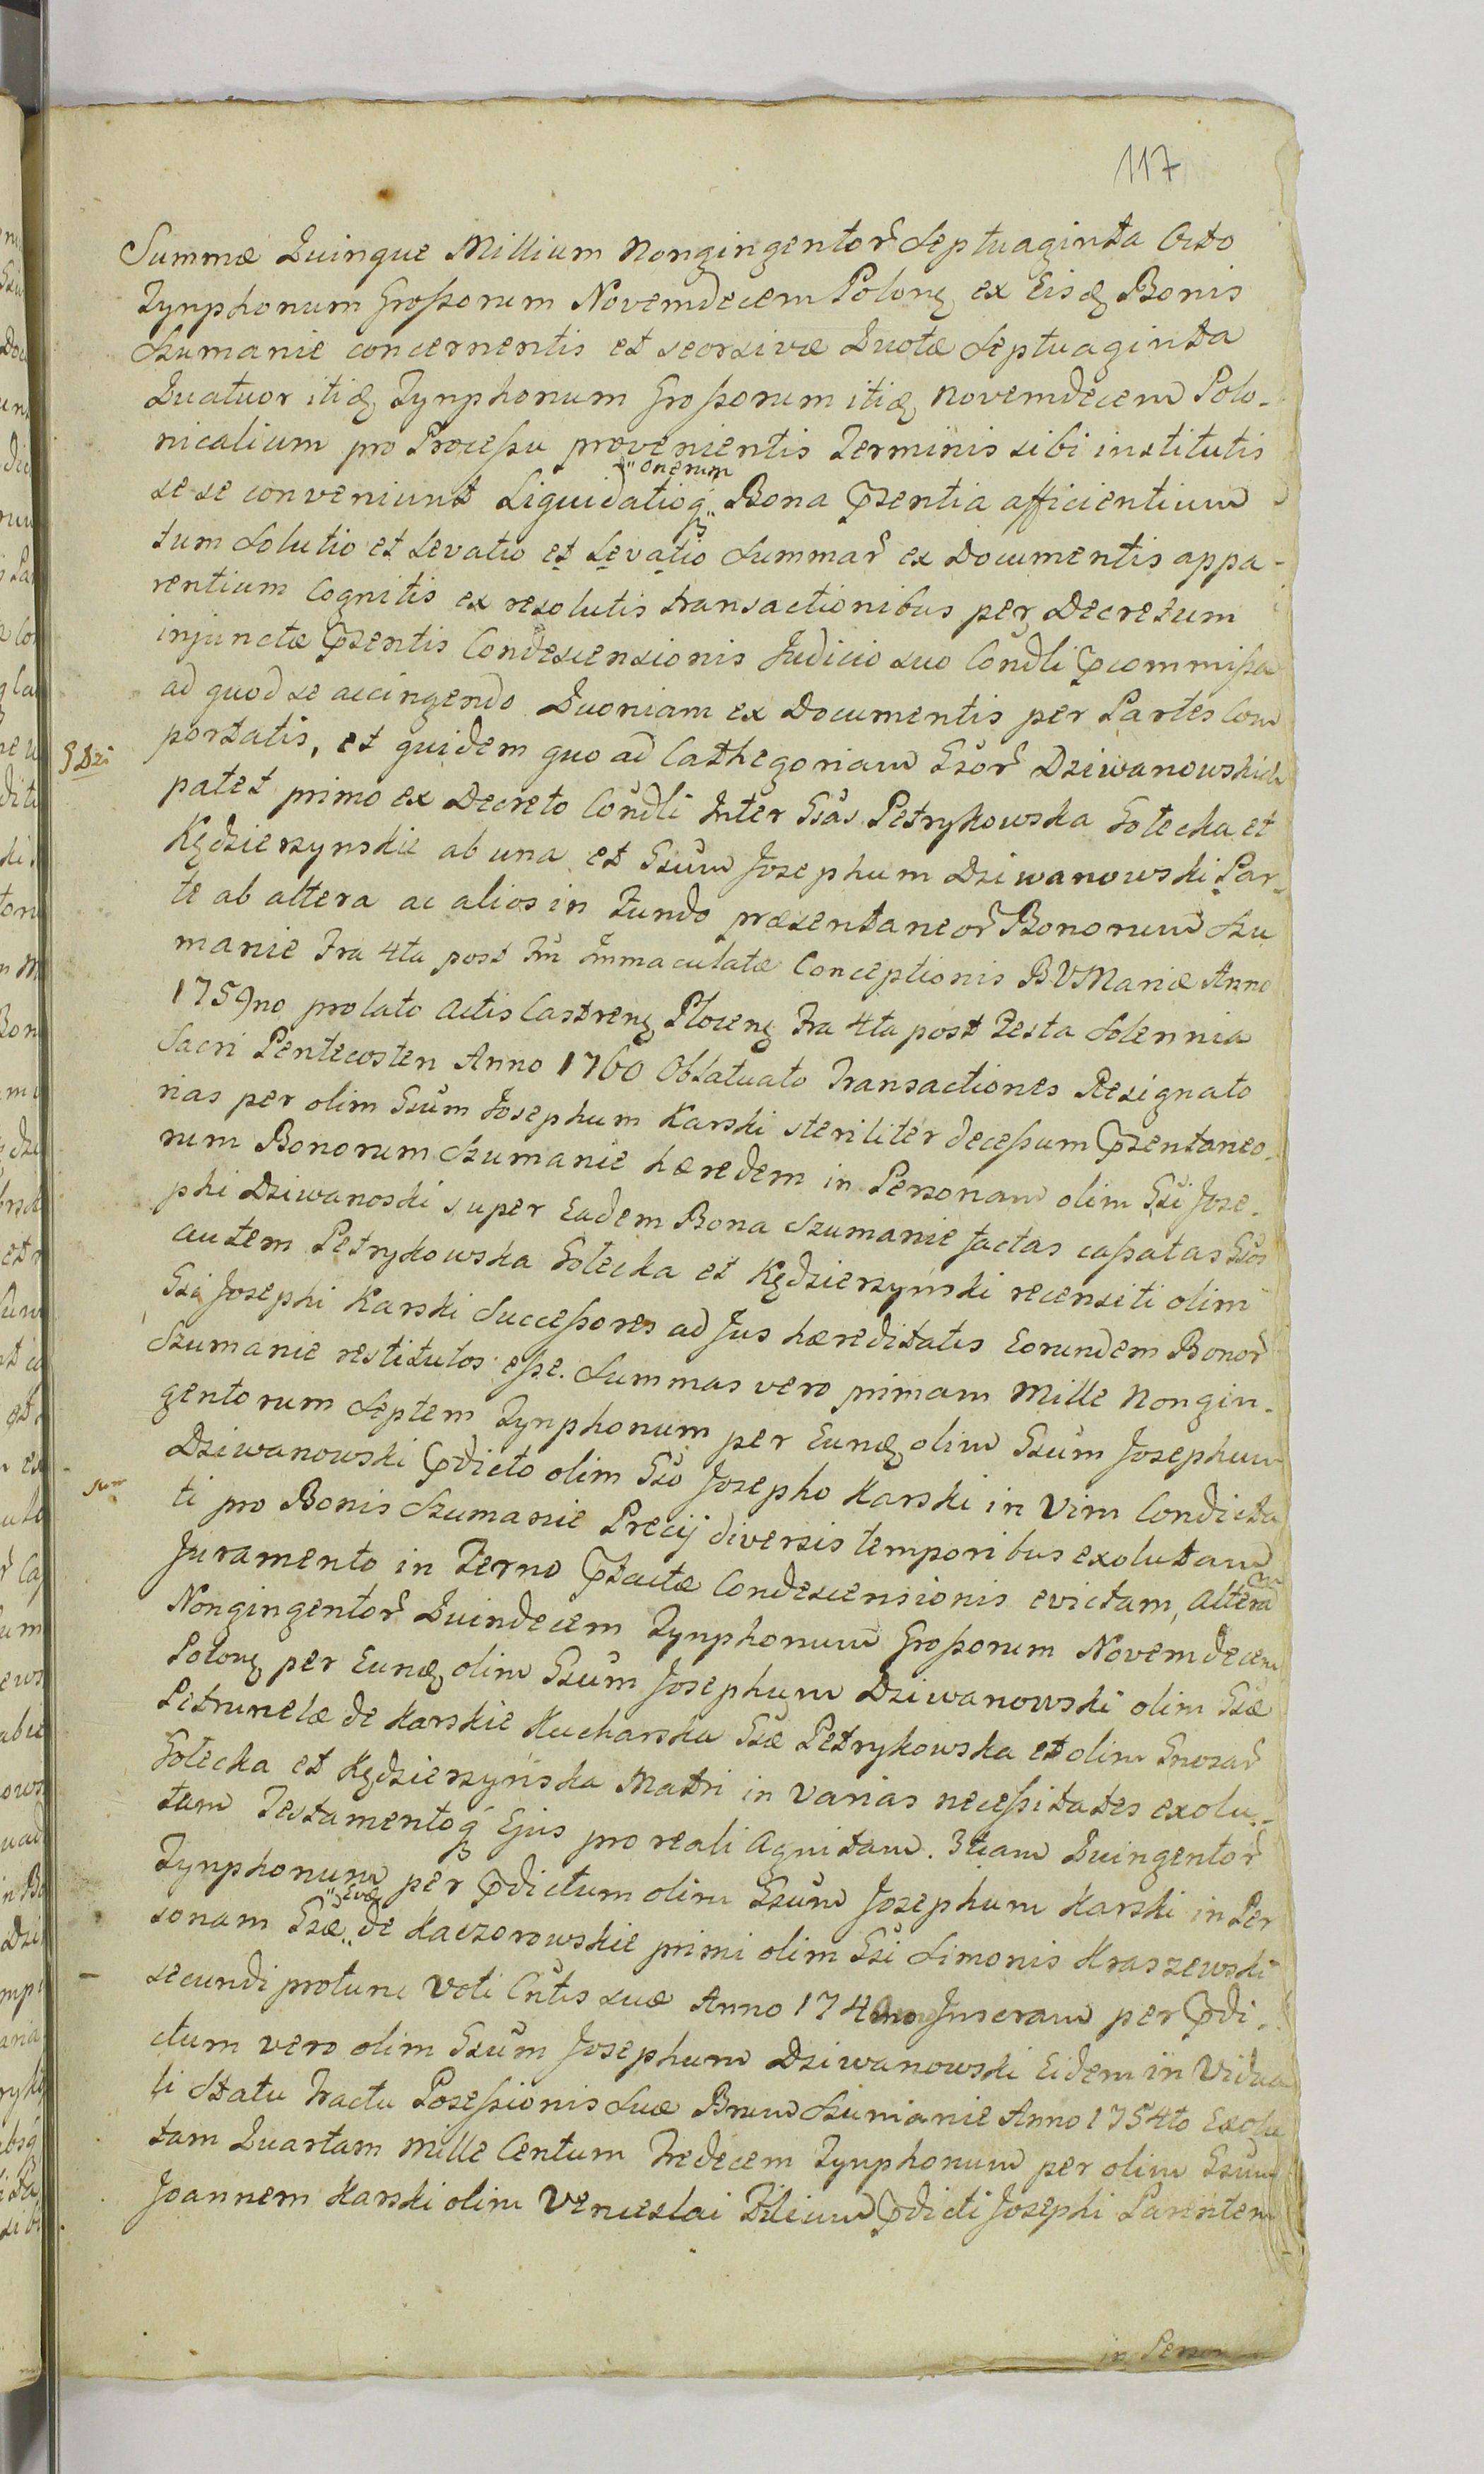 117
Summæ Quinque Millium Nongingentor̃ Septuaginta Octo
Tynphonum Grossorum Novemdecem Polonꝫ ex Eisdꝫ Bonis
Szumanie concernentis et seorsivæ Quotæ Septuaginta
Quatuor itidꝫ Tynphonum Grossorum itidꝫ Novemdecem Polo-
nicalium pro Processu provenientis Terminis sibi institutis
se se conveniunt Liquidatioq́ꝫ onerum Bona Pꝛsentia afficientium
tum Solutio et Levatio et Levatio Summar̃ ex Documentis appa-
rentium Cognitis ex resolutis transactionibus per Decretum
injunctæ Pꝛsentis Condescensionis Judicio suo Condli Pꝛcommissa
ad quod se accingendo Quoniam ex Documentis per Partes Com
portatis, et quidem quo ad Cathegoriam Gsor̃ Dziwanowskich
patet primo ex Decreto Condli Inter Gsas Petrykowska Gołecka et
Kędzierzynskie ab una et Gsum Josephum Dziwanowski Par-
te ab altera ac alios in Fundo præsentaneor̃ Bonorum Szu
manie Fra 4ta post Fm̃ Immaculatæ Conceptionis BVMariæ Anno
1759no prolato Actis Castrenꝫ Plocenꝫ Fra 4ta post Festa Solennia
Sacri Pentecosten Anno 1760 Oblatuato Transactiones Resignato
rias per olim Gsum Josephum Karski steriliter decessum Pꝛsentaneo-
rum Bonorum Szumanie hæredem in Personam olim Gsi Jose-
phi Dziwanoski super Eadem Bona Szumanie factas cassatas Gsos
autem Petrykowska Gołecka et Kędzierzyński recensiti olim
Gsi Josephi Karski Successores ad Jus hæreditatis Eorundem Bonor̃
Szumanie restitutos esse. Summas vero primam Mille Nongin-
gentorum Septem Tynphonum per Eundꝫ olim Gsum Josephum
Dziwanowski Pꝛdicto olim Gso Josepho Karski in Vim Condicta
ti pro Bonis Szumanie Precij diversis temporibus exolutam
Juramento in Terno Pꝛtactæ Condescensionis evictam, Alteram
Nongingentor̃ Quindecem Tynphonum Grossorum Novemdecem
Polonꝫ per Eundꝫ olim Gsum Josephum Dziwanowski olim Gsæ
Petrunelæ de Karskie Kucharska Gsæ Petrykowska et olim Gnosar̃
Gołecka et Kędzierzyńska Matri in varias necessitates exolu-
tam Testamentoq́ꝫ Ejus pro reali Agnitam. 3tiam Quingentor̃
Tynphonum per Pꝛdictum olim Gsum Josephum Karski in Per
sonam Gsæ Evæ de Kaczorowskie primi olim Gsi Simonis Kraszewski
secundi protunc Voti Cntis suæ Anno Inscram per Pꝛdi-
ctum vero olim Gsum Josephum Dziwanowski Eidem in Vidua
li Statu Tractu Posessionis Suæ Bnum Szumanie Anno 1754to Exolu
tam Quartam Mille Centum Tredecem Tynphonum per olim Gsum
Joannem Karski olim Venceslai Filium Pꝛdicti Josephi Parentem
in Person